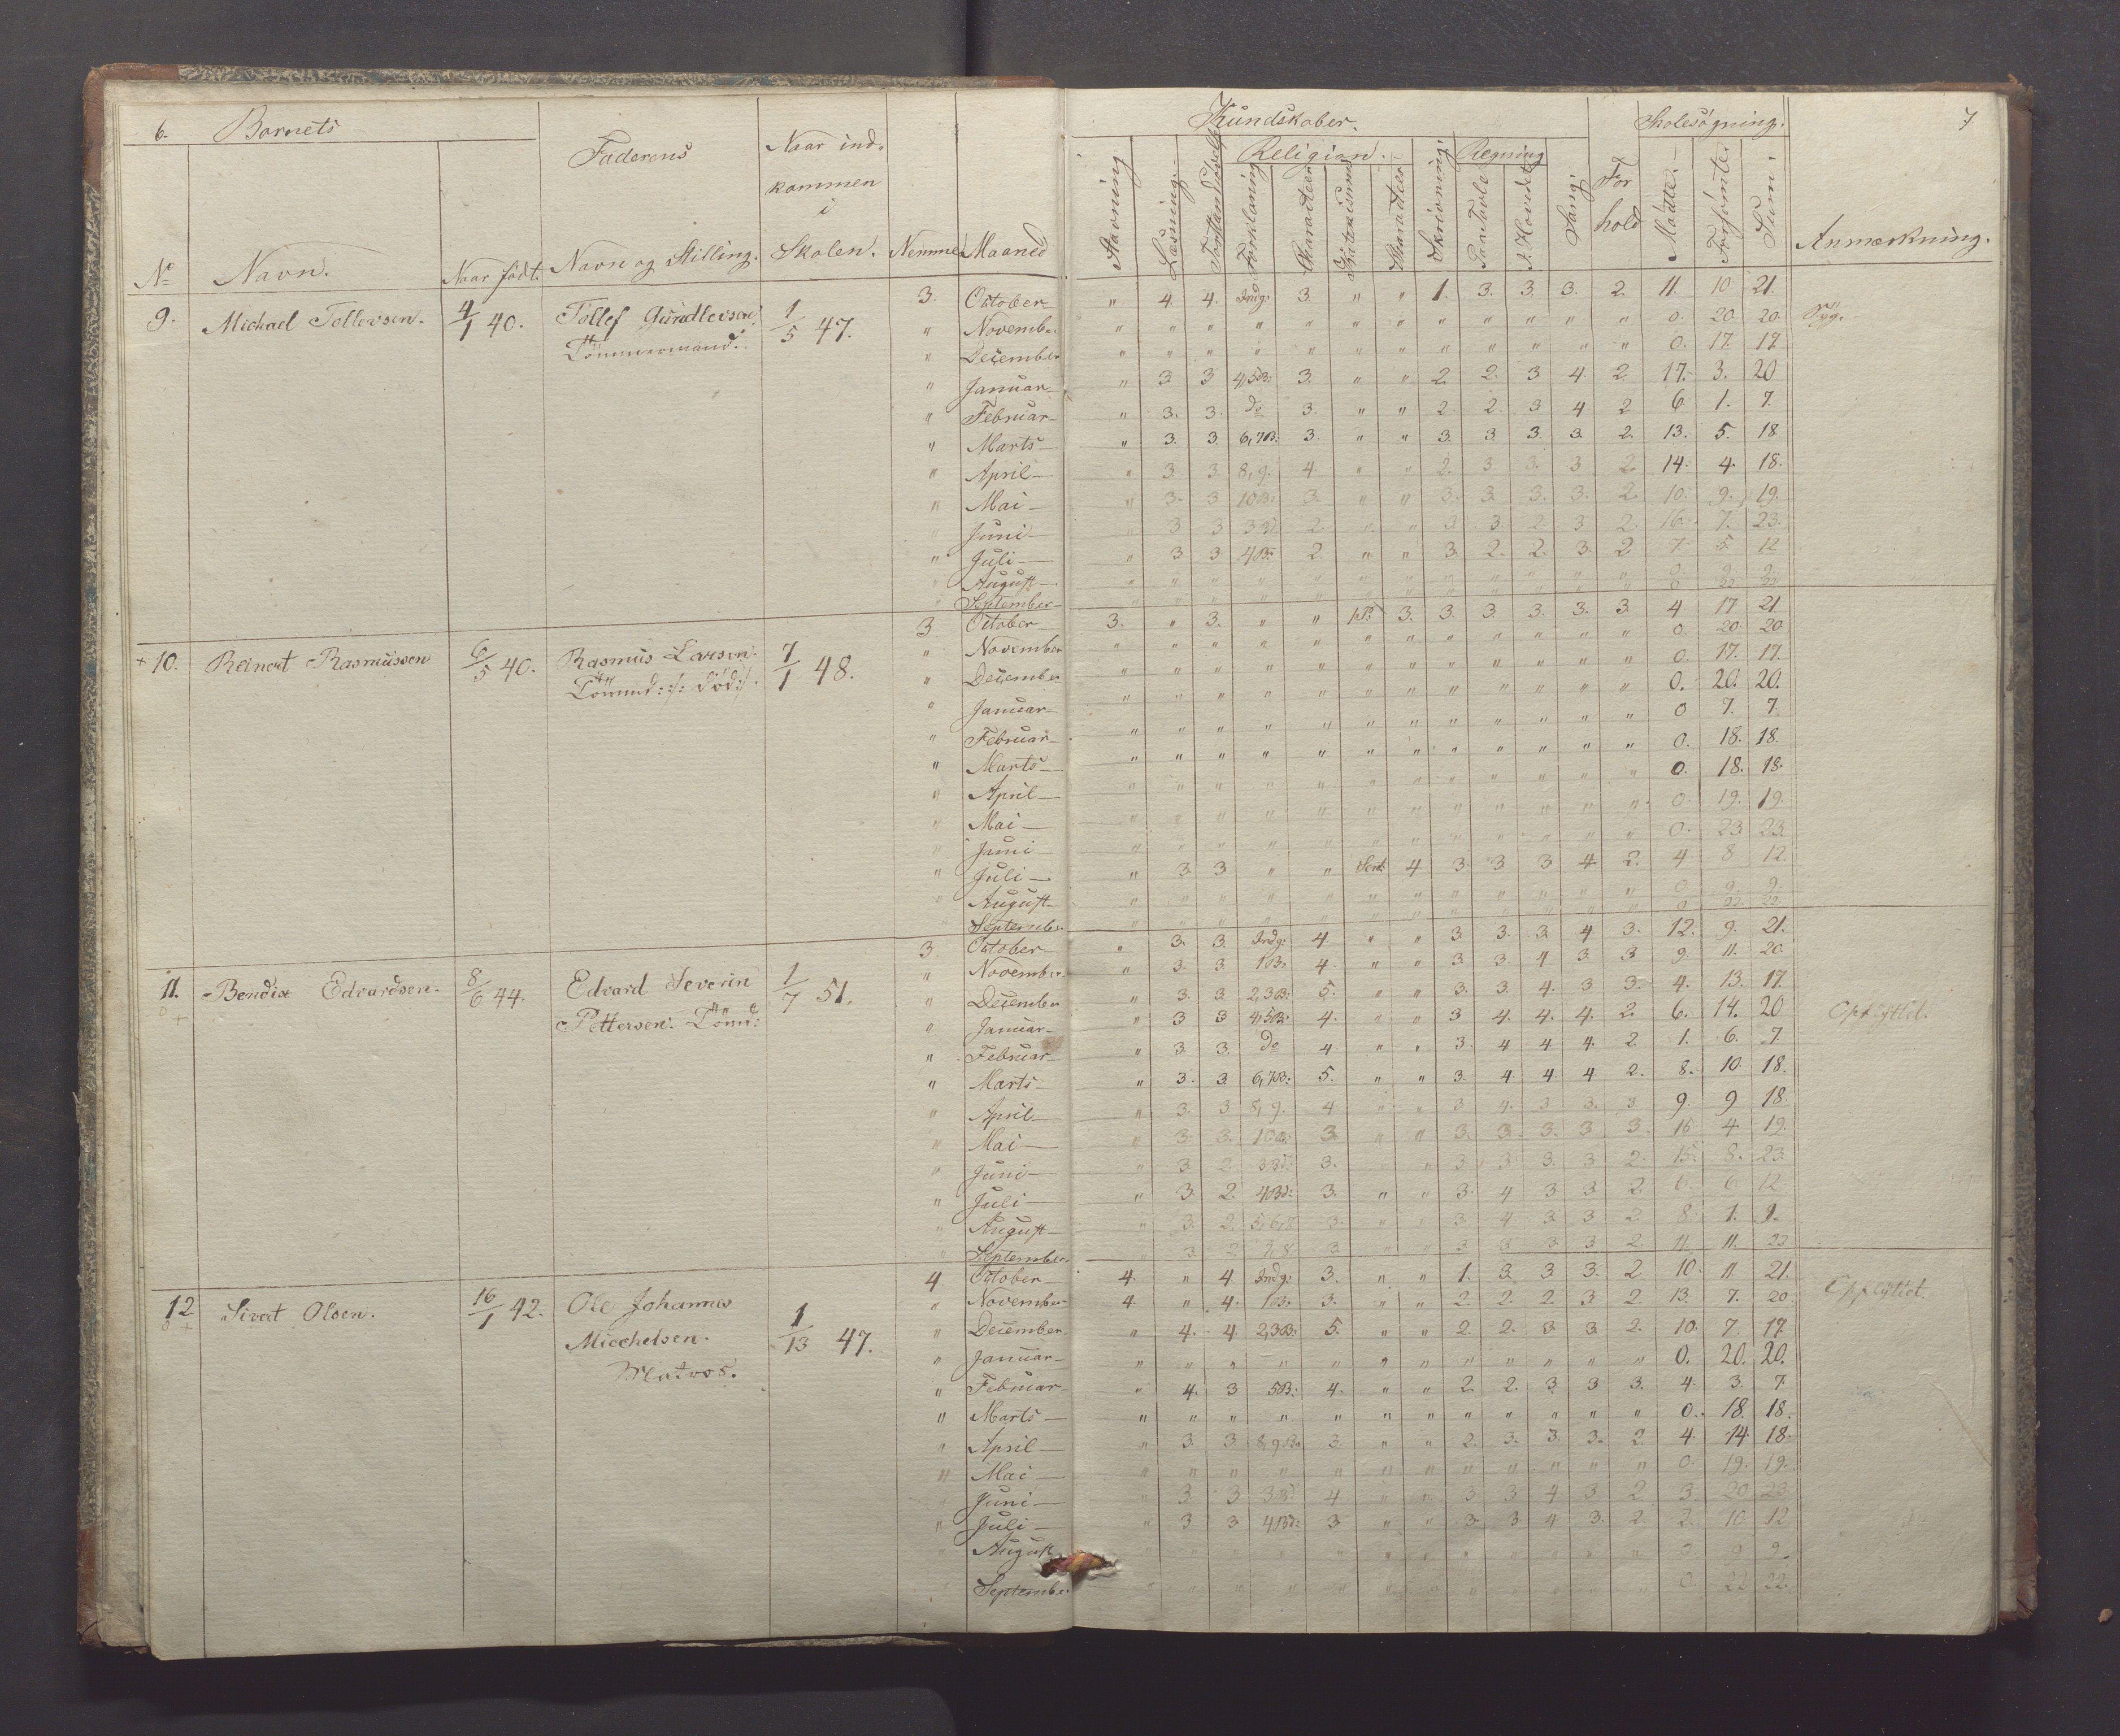 6. Barnets Faderens Naar ind-
kommen
i
No Navn. Naar födt. Navn og Stilling. Skolen. Nemme Maaned
Kundskaber. Skolesögning. 7
Religion. Regning
Stavning Læsning Forklaring Karacteer Karacteer Skrivning. Paa Tavle Sang. For
hold Mødte. Forsömte. Sum. Anmærkning.
9. Michael Tollevsen. 4/1 40. Tollef Gundlevsen 1/5 47. 3. October " 4. 4. Indg: 3. " " 1. 3. 3. 3. 2. 11. 10 21.
Tömmermand. " November " " " " " " " " " " " " 0. 20. 20. Syg.
" December " " " " " " " " " " " " 0. 17. 17.
" Januar " 3. 3 4,5B: 3. " " 2. 2. 3 4. 2 17. 3. 20
" Februar " 3. 3. do 3. " " 2. 2. 3 4 2 6. 1. 7.
" Marts " 3. 3. 6,7B: 3. " " 3. 3. 3. 3. 2. 13. 5. 18
" April " 3. 3. 8,9. 4. " " 2. 3. 3. 3 2. 14. 4. 18.
" Mai " 3. 3 10B: 3. " " 3. 3. 3. 3. 2. 10. 9. 19.
" Juni " 3 3 3B: 2. " " 3 3. 2. 3 2. 16. 7. 23.
" Juli " 3 3 4B: 2. " " 3. 2. 2. 3. 2 7. 5. 12
" August " " " " " " " " " " " " 0. 9. 9.
" September " " " " " " " " " " " " 0 22 22
+10. Reinert Rasmussen 6/5 40. Rasmus Larsen. 7/1 48. 3 October 3. " 3. " " 3. 3. 3. 3. 3. 3. 4 17 21
Tömmd: /: död :/. " November " " " " " " " " " " " " 0. 20 20
" December " " " " " " " " " " " " 0. 17. 17.
" Januar " " " " " " " " " " " " 0. 20. 20.
" Februar " " " " " " " " " " " " 0 7. 7.
" Marts " " " " " " " " " " " " 0. 18. 18.
" April " " " " " " " " " " " " 0. 18. 18.
" Mai " " " " " " " " " " " " 0. 19. 19.
" Juni " " " " " " " " " " " " 0. 23 23.
" Juli " 3. 3 " " 4 3. 3 3 4 2. 4 8 12.
" August " " " " " " " " " " " " 0 9. 9.
" September " " " " " " " " " " " " 0 22. 22.
11. Bendix Edvardsen. 8/6 44. Edvard Severin 1/7 51. 3. October " 3. 3. Indg: 4. " " 3 3. 3. 4 3. 12. 9. 21.
Pettersen. " November " 3. 3. 1B: 4. " " 3 3. 4 3. 3 9. 11. 20.
" December " 3. 3. 2,3B: 5. " " 3. 3. 4. 3 3. 4. 13. 17.
" Januar " 3 3 4,5B: 4. " " 3 4. 4. 4. 2. 6. 14. 20 Opflyttet.
" Februar " 3. 3. do 4 " " 3. 4 4 4. 2 1. 6. 7
" Marts " 3. 3 6,7B: 5. " " 3. 4. 4. 4 2. 8. 10. 18.
" April " 3. 3 8,9. 4 " " 3 4. 3 3. 3 9. 9 18.
" Mai " 3. 3. 10B: 3. " " 3. 3. 3. 3 3. 15 4. 19.
" Juni " 3 2 3B: 3. " " 3 3 3. 3 2. 15. 8. 23.
" Juli " 3. 2. 4B: 3. " " 3. 4 3 3. 2 6. 6 12
" August " 3. 2. 5,6, 3. " " 3 4 3 3 2 8. 1. 9.
" September " 3 2 7,8 3 " " 3 3 3 3 2. 11 11. 22
12. Sivert Olsen. 16/1 42. Ole Johannes 1/13 47. 4 October 4. " 4 Indg: 3. " " 1. 3. 3 3. 2 10. 11 21. Opflyttet.
Micchelsen. " November 4. " 4. 1B: 3. " " 2. 2. 2. 3 2. 13. 7. 20
Matros. " December " 4. 4 2,3B: 5. " " 2. 2. 3 3. 2. 10. 7. 17.
" Januar " " " " " " " " " " " " 0. 20. 20.
" Februar " 4. 3 5B: 4. " " 2 2. 3 3 3. 4. 3. 7
" Marts " " " " " " " " " " " " 0. 18. 18.
" April " 3. 3 8,9B: 3. " " 2. 3. 3. 3. 2 4. 14 18.
" Mai " " " " " " " " " " " " 0. 19. 19.
" Juni " 3 3 3B: 4 " " 3 3 4 3 2 3. 20 23.
" Juli " 3 3 4B: 3 " " 3. 3 4 3. 2. 2. 10 12
" August " " " " " " " " " " " " 0. 9 9.
" September " " " " " " " " " " " " 0. 22 22.